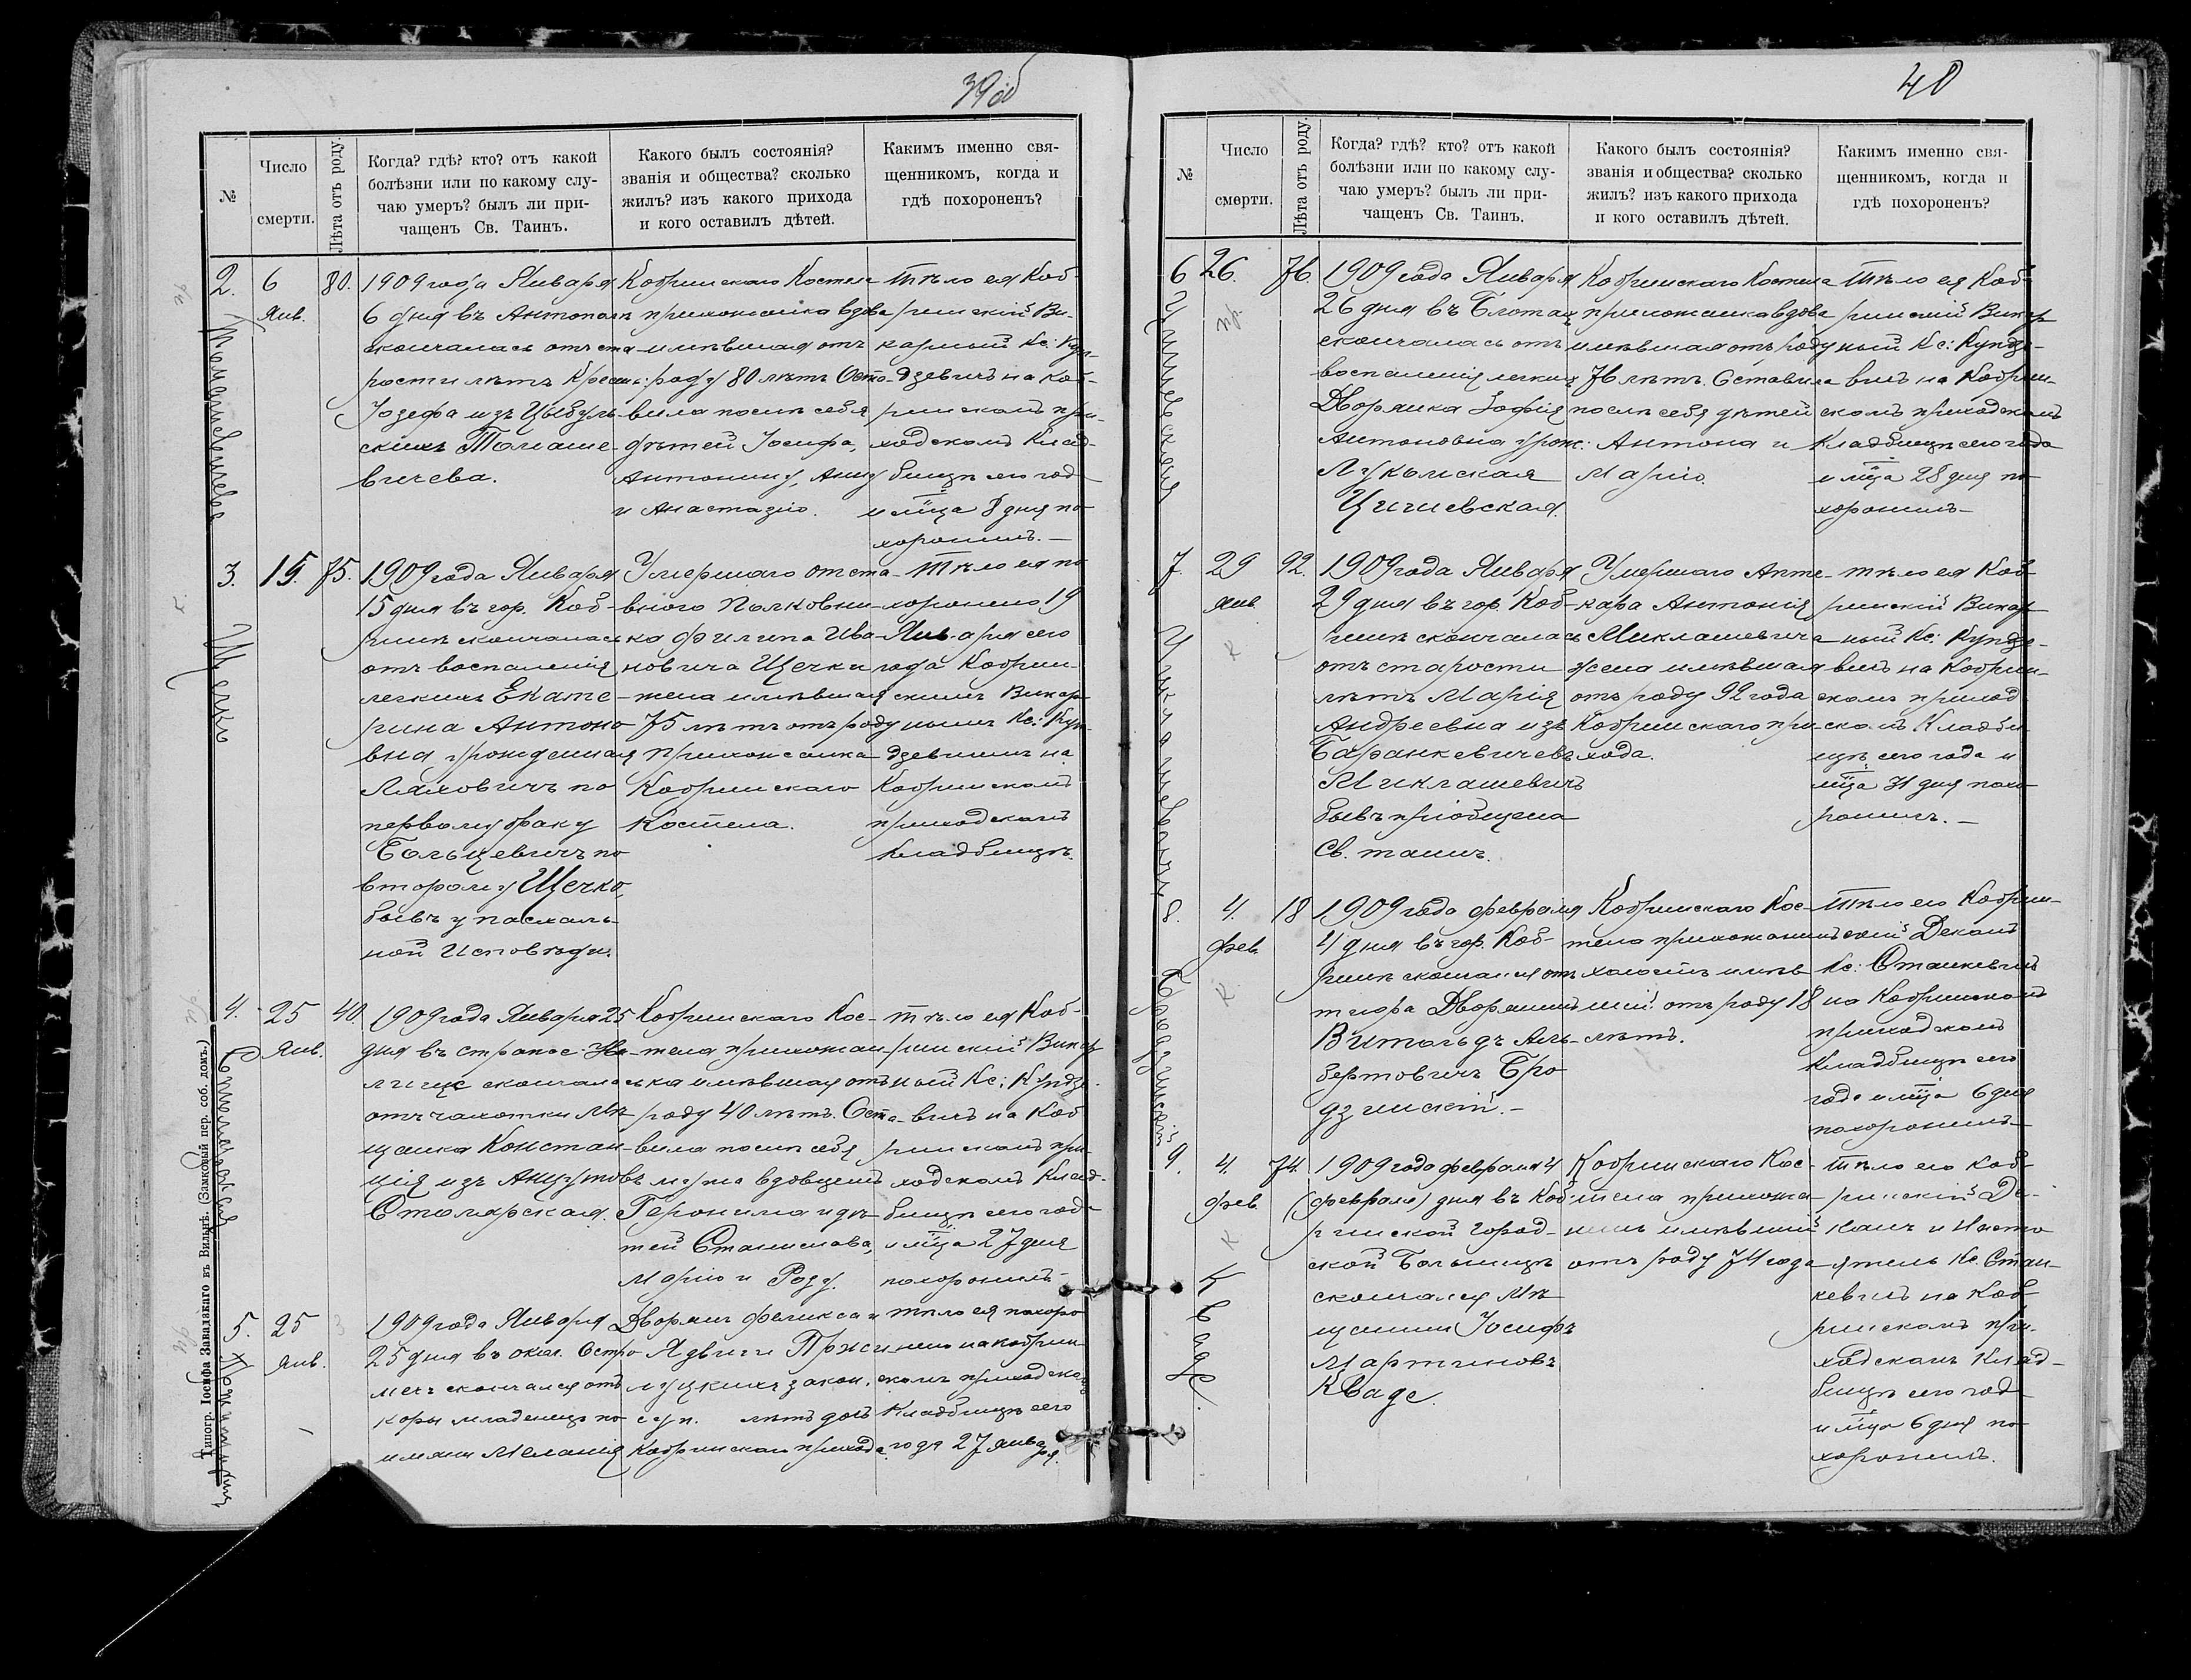 39об
№
Число
смерти.
Лѣта отъ роду.
Когда? гдѣ? кто? отъ какой
болѣзни или по какому слу-
чаю умеръ? былъ ли при-
чащенъ Св. Таинъ.
Какого былъ состоянія?
званія и общества? сколько
жилъ? изъ какого прихода
и кого оставилъ дѣтей.
Какимъ именно свя-
щенникомъ, когда и
гдѣ похороненъ?
2.
6
Янв.
80.
1909 года Января
6 дня въ Антополѣ
скончалась отъ ста-
рости лѣтъ Крестьн:
Іозефа изъ Цыбуль-
скихъ Томаше-
вичева.
Кобринскаго Костела
прихожанка вдова
имѣвшая отъ
роду 80 лѣтъ Оста-
вила послѣ себя
дѣтей Іосифа,
Антонину, Анну
и Анастазію.
Тѣло ея Коб-
ринскій Ви-
карный Кс: Кун-
дзевичъ на Коб-
ринскомъ при-
ходскомъ Клад-
бищѣ сего года
и мца 8 дня по-
хоронилъ.—
3.
15.
75.
Щечко
1909 года Января
15 дня въ гор. Коб-
ринѣ скончалась
отъ воспаленія
легкихъ Екате-
рина Антоно-
вна урожденная
Ляховичъ по
первому браку
Больцевичъ по
второму Щечко,
бывъ у пасхаль-
ной Исповѣди.
Умершаго отста-
вного Полковни-
ка Филипа Ива-
новича Щечки
жена имѣвшая
75 лѣтъ отъ роду
прихожанка
Кобринскаго
Костела.
Тѣло ея по-
хоронено 19
Января сего
года Кобрин-
скимъ Викар-
нымъ Кс: Кун-
дзевичемъ на
Кобринскомъ
приходскомъ
Кладбищѣ.
4.
25
Янв.
40.
Столярская
1909 года Января 25
дня въ
скончалась
отъ чахотки Мѣ-
щанка Констан-
ція изъ Анцутовъ
Столярская.
Кобринскаго Кос-
тела прихожан-
ка имѣвшая отъ
роду 40 лѣтъ. Оста-
вила послѣ себя
мужа вдовцемъ
Геронима и дѣ-
тей Станислава,
Марію и Розу.
Тѣло ея Коб-
ринскій Викар-
ный Кс: Кундзе-
вичъ на Коб-
ринскомъ при-
ходскомъ Клад-
бищѣ сего года
и мца 27 дня
похоронилъ
5.
25
Янв.
1909 года Января
25 дня въ окол. Остро-
скончался отъ
коры младенецъ по
имяни Меланія
Дворянъ Феликса и
Ядвиги
закон.
суп. дочь
Кобринскаго прихода
тѣло ея похоро-
нено на Кобрин-
скомъ приходском
Кладбищѣ сего
года 27 января.
Типогр. Іосифа Завадзкаго въ Вильнѣ. (Замковый пер. соб. домъ.)
40
№
Число
смерти.
Лѣта отъ роду.
Когда? гдѣ? кто? отъ какой
болѣзни или по какому слу-
чаю умеръ? былъ ли при-
чащенъ Св. Таинъ.
Какого былъ состоянія?
званія и общества? сколько
жилъ? изъ какого прихода
и кого оставилъ дѣтей.
Какимъ именно свя-
щенникомъ, когда и
гдѣ похороненъ?
6
26.
76.
1909 года Января
26 дня въ Блотахъ
скончалась отъ
воспаленія легкихъ
Дворянка Зофія
Антоновна урож:
Лукомская
Цичневская.
Кобринскаго Костела
прихожанка вдова
имѣвшая отъ роду
76 лѣтъ. Оставила
послѣ себя дѣтей
Антона и
Марію.
Тѣло ея Коб-
ринский Викар-
ный Кс: Кундзе-
вичъ на Кобрин-
скомъ приходскомъ
Кладбищѣ сего года
и мца 28 дня по-
хоронилъ—
7.
29
Янв
92.
К
Миклашевичъ
1909 года Января
29 дня въ гор. Коб-
ринѣ скончалась
отъ старости
лѣтъ Марія
Андреевна изъ
Баранкевичевъ
Миклашевичъ
бывъ пріобщена
Св. таинъ.
Умершаго Апте-
каря Антонія
Миклашевича
жена имѣвшая
отъ роду 92 года
Кобринскаго при-
хода.
тѣло ея Коб-
ринскій Викар-
ный Кс: Кундзе-
вичъ на Кобрин-
скомъ приход-
скомъ Кладби-
щѣ сего года и
мца 31 дня похо-
ронилъ.—
8.
4.
Фев.
18
К
Бродзинскій
1909 года Февраля
4 дня въ гор. Коб-
ринѣ скончался отъ
тифа Дворянинъ
Витольдъ Аль-
бертовичъ Бро-
дзинскій.—
Кобринскаго Кос-
тела прихожанинъ
холостъ имѣв-
шій отъ роду 18
лѣтъ.
Тѣло его Кобрин-
скій Деканъ
Кс: Станкевичъ
на Кобринскомъ
приходскомъ
Кладбищѣ сего
года и мца 6 дня
похоронилъ—
9.
4.
Фев.
74.
К
Кваде.
1909 года Февраля 4
(февраля) дня въ Коб-
ринской Город-
ской Больницѣ
скончался Мѣ-
щанин Іосифъ
Мартиновъ
Кваде.
Кобринскаго Кос-
тела прихожа-
нинъ имѣвшій
отъ роду 74 года
Тѣло его Коб-
ринскій Де-
канъ и Насто-
ятель Кс. Стан-
кевичъ на Коб-
ринскомъ при-
ходскомъ Клад-
бищѣ сего года
и мца 6 дня по-
хоронилъ.